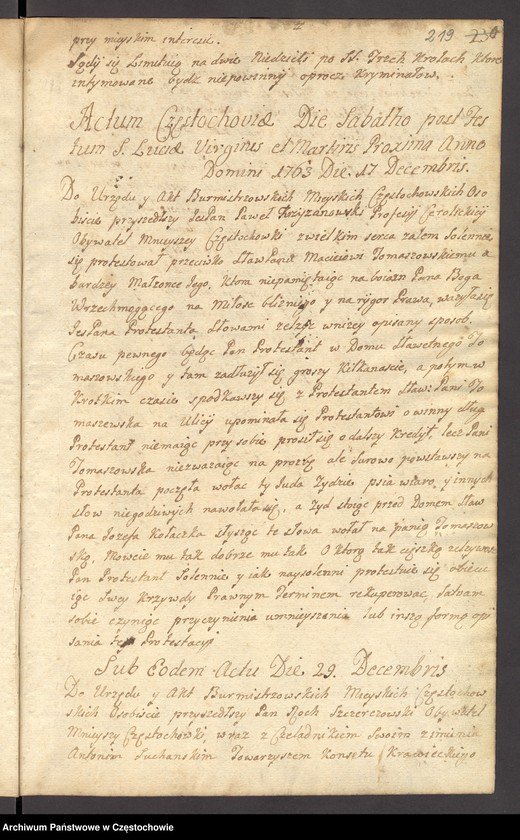 219
przy mieyskim interesie.
Sądy się Limituią na dwie Niedzieli po SS. Trzech Krolach ktore
intymowane bydz niepowinny oprocz Kryminałow.
Actum Częstochoviæ Die Sabatho post Fes
tum S. Luciæ Virginis et Martiris Proxima Anno
Domini 1763 Die. 17 Decembris.
Do Urzędu y Akt Burmistrzowskich Mieyskich Częstochowskich Oso
biscie przyszedłszy JesPan Paweł Krzyzanowski Profesij
Obywatel Mnieyszey Częstochowki zwielkim serca zalem Solennie
się protestował przeciwko SławPanu Macieiowi Tomaszowskiemu a
bardzey Małzonce Jego, Ktora niepamiętaiąc na boiazn Pana Boga
Wszechmogącego na Miłosc blizniego y na rygor Prawa, wazyła się
JesPana Protestanta Słowami zelzyc wnizey opisany sposob.
Czasu pewnego będąc Pan Protestant w Domu Sławetnego To
maszowskiego y tam zadłuzył się groszy Kilkanascie, a potym w
Krotkim czasie spodkawszy się z Protestantem Sław: Pani To
maszewska na Ulicy upominała się Protestantowi o winny dług
Protestant niemaiąc przy sobie prosił się o dalszy Kredyt, lecz Pani
Tomaszowska niezwazaiąc na prozby ale surowo powstawszy na
Protestanta poczęła wołac ty Juda Zydzie psia wiaro y innych
słow niegodziwych nawołała się, a Zyd stoiąc przed Domem Sław
Pana Jozefa Kołaczka słysząc te słowa wołał na panią Tomaszow
ską, Mowcie mu tak dobrze mu tak O Ktorą tak cięszką zelzywosc
Pan Protestant Solennie y iak naysolenni protestuie się obiecu
iąc swey Krzywdy Prawnym Terminem rekuperowac, salvam
sobie czyniąc przyczynienia umnieyszania lub inszą formą opi
sania tey Protestacyi
Sub Eodem Actu Die 29. Decembris
Do Urzędu y Akt Burmistrzowskich Mieyskich Częstochow
skich Osobiscie przyszedłszy Pan Roch Szczerczowski Obywatel
Mnieyszy Częstochowki wraz z Czeladnikiem Swoim zimienia
Antonim Suchanskim Towarzyszem Konsztu Krawieckiego
Archiwum Państwowe w Częstochowie